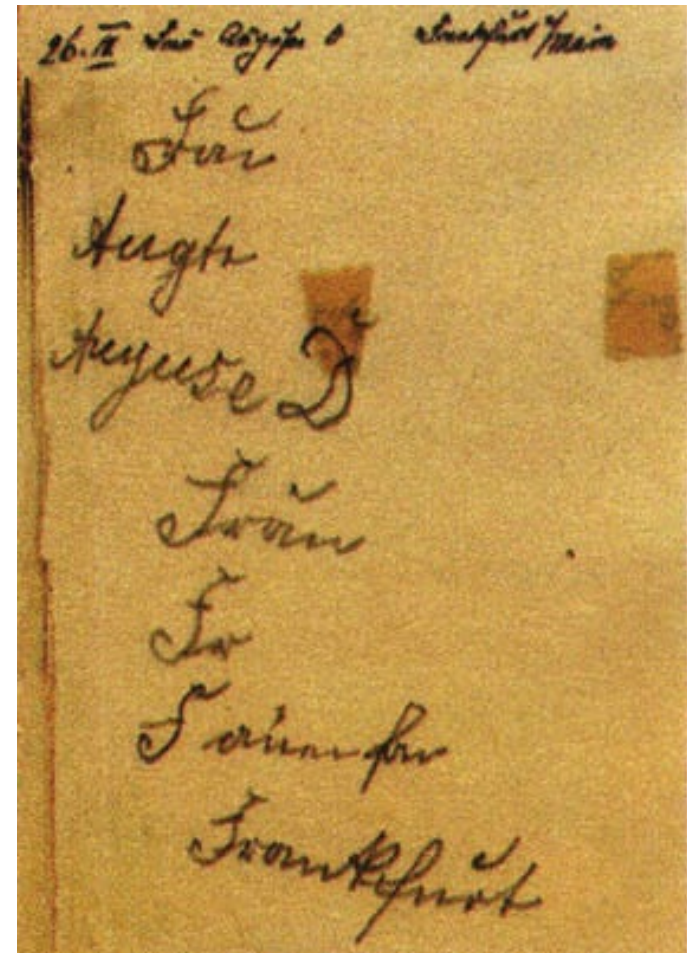 26. XI Frau Auguste D Frankfurt a/Main
Fau
Augte
Auguse D
Fraun
Fr
Frankfurt